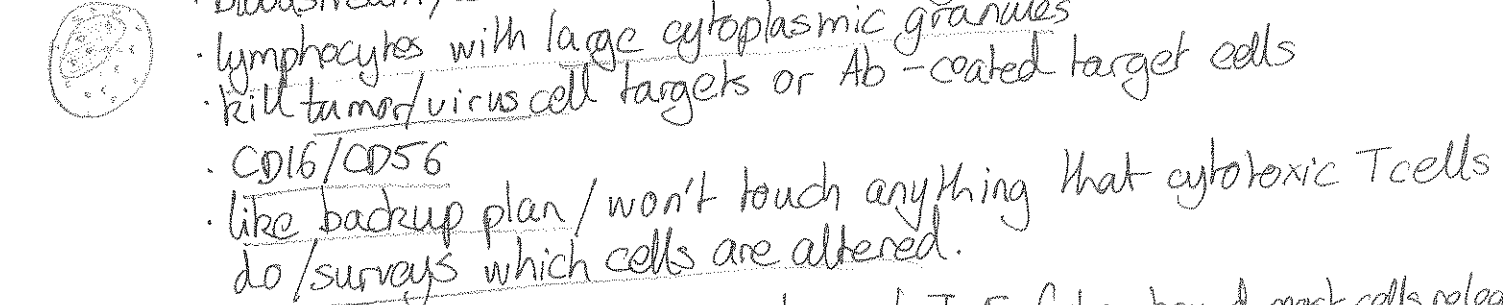 · bloodstream/
· lymphocytes with large cytoplasmic granules
· kill tumor/virus cell targets or Ab-coated target cells
· CD16/CD56
· like backup plan/won't touch anything that cytotoxic T cells
do/surveys which cells are altered.
most cells